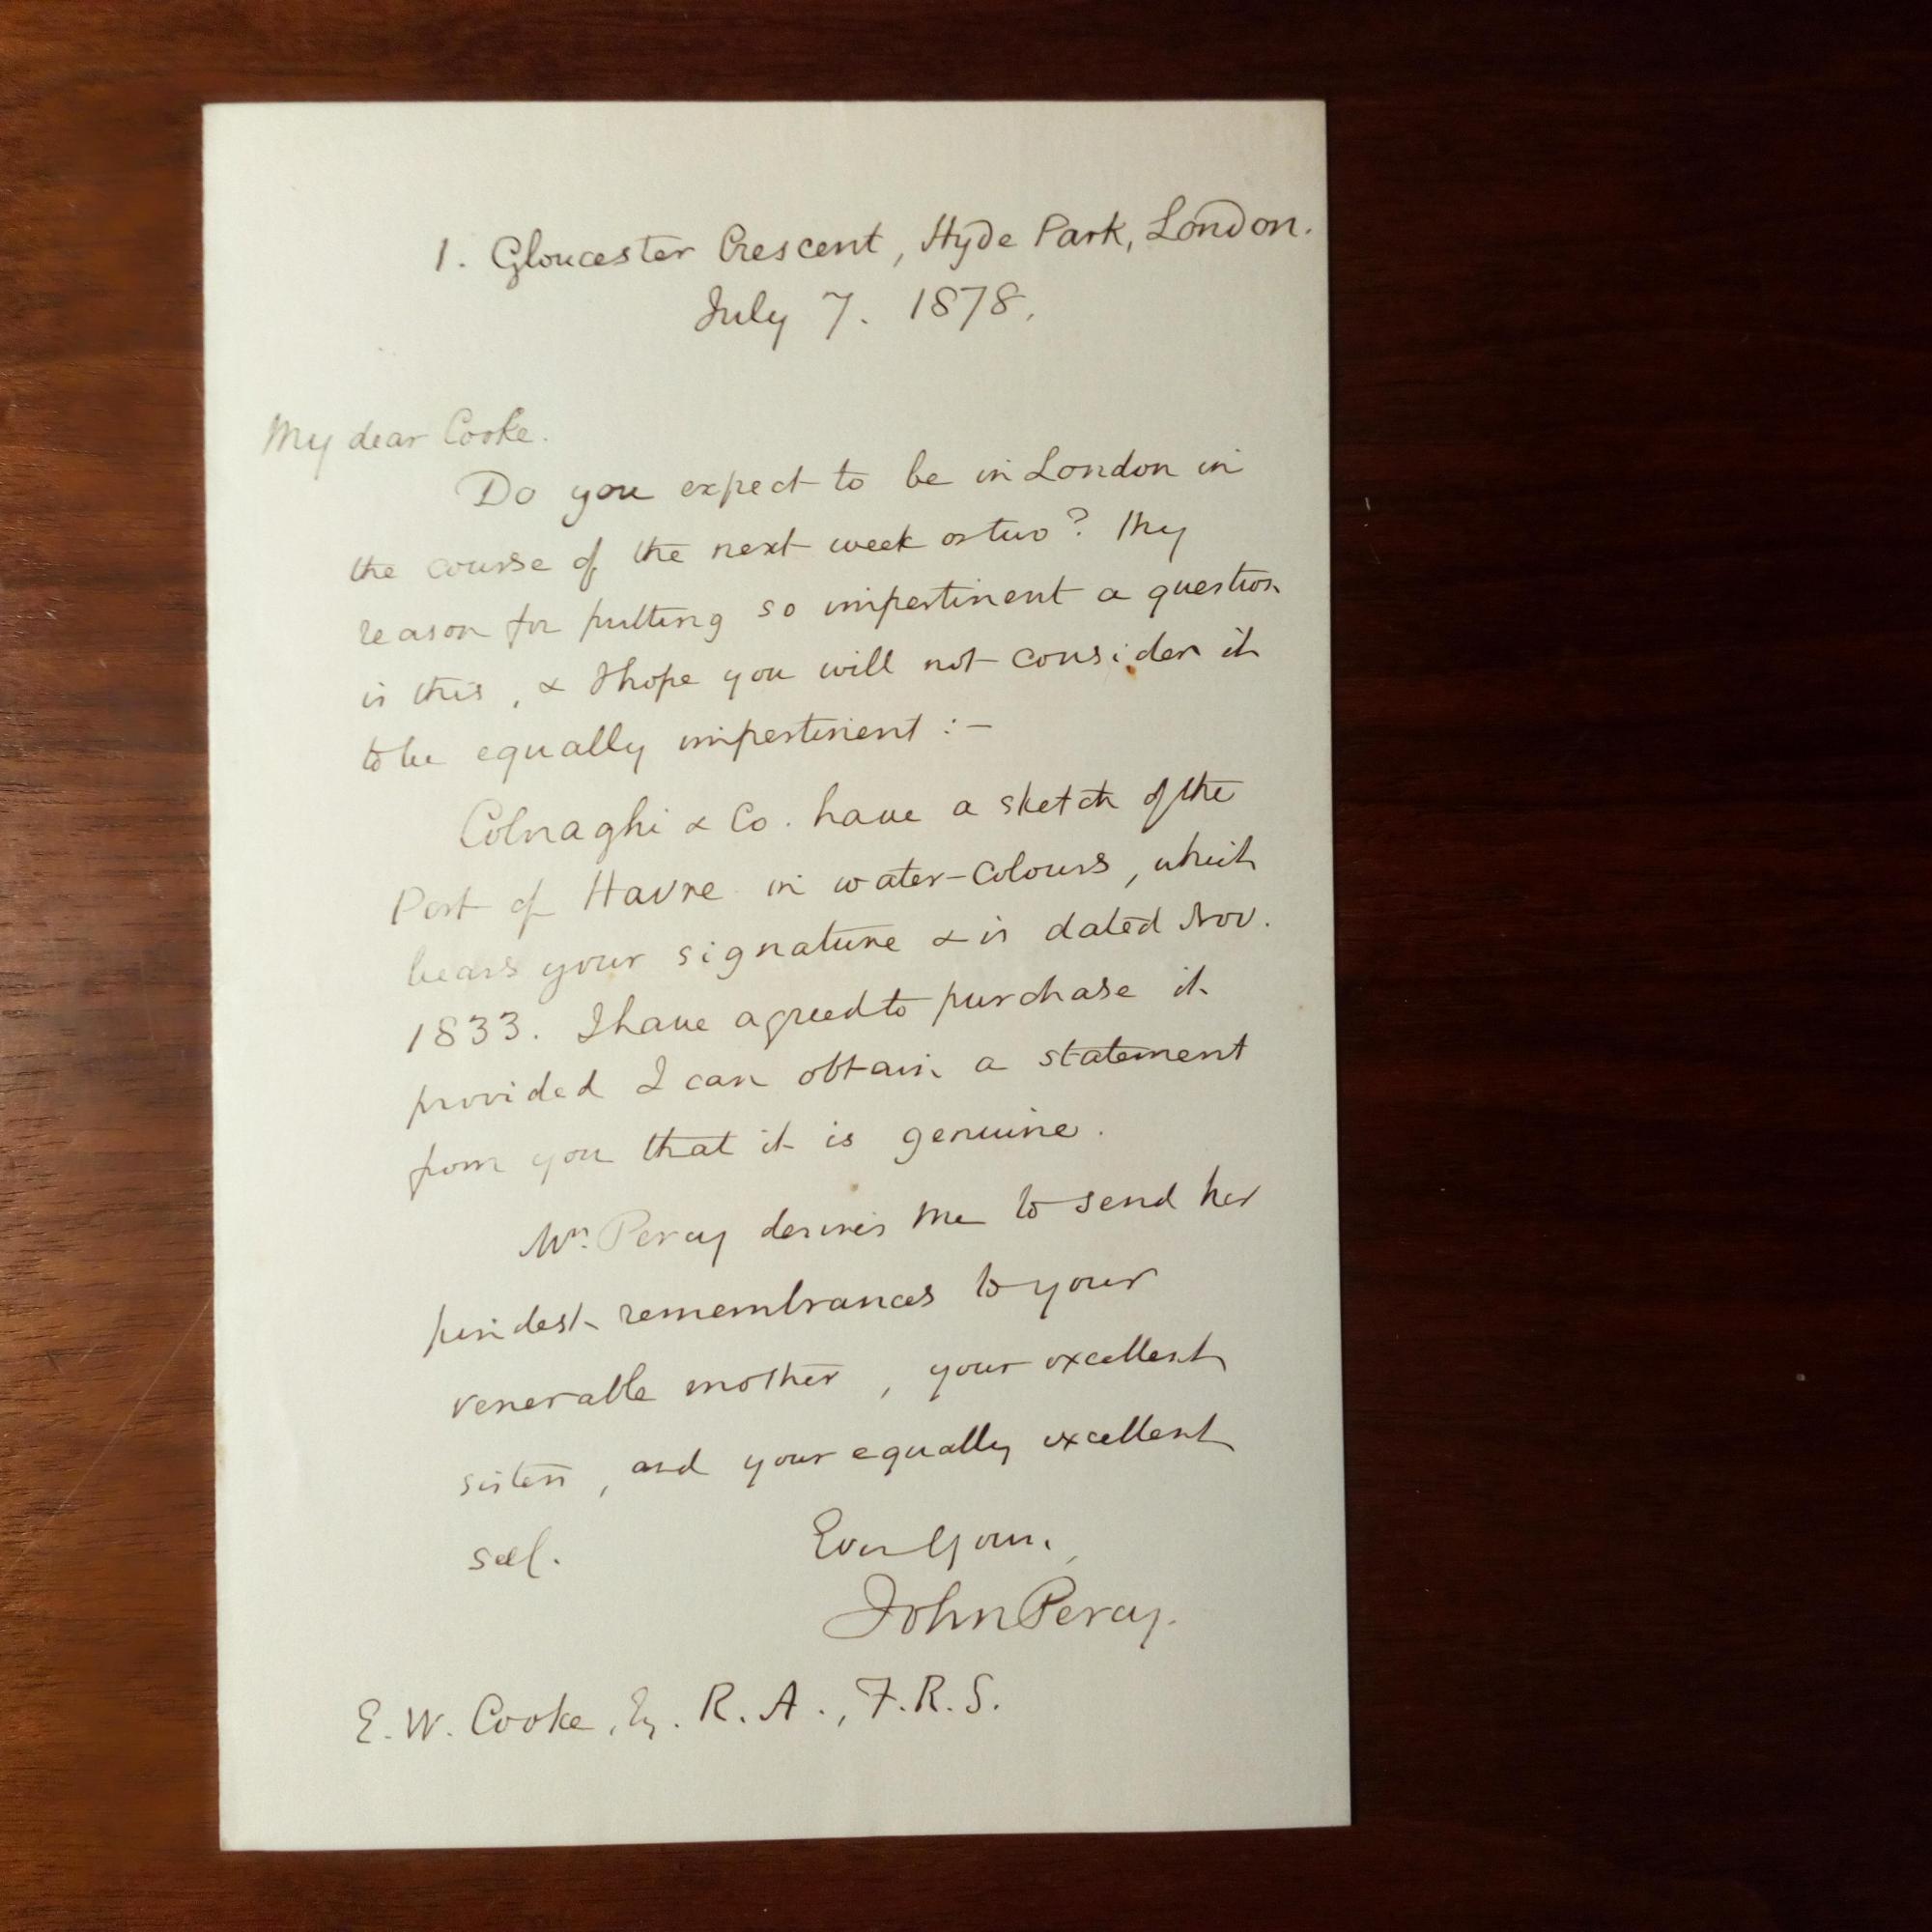 1. Gloucester Crescent, Hyde Park, London.
July 7. 1878.
My dear Cooke.
Do you expect to be in London in
the course of the next week or two? My
reason for putting so impertinent a question
is this, & I hope you will not consider it
to be equally impertinent :-
Colnaghi & Co. have a sketch of the
Port of Havre in water-colours, which
bears your signature & is dated Nov.
1833. I have agreed to purchase it
provided I can obtain a statement
from you that it is genuine.
Mrs. Percy desires me to send her
kindest remembrances to your
venerable mother, your excellent
sisters, and your equally excellent
self.
Ever Yours,
John Percy.
E. W. Cooke, Esq. R. A., F.R.S.